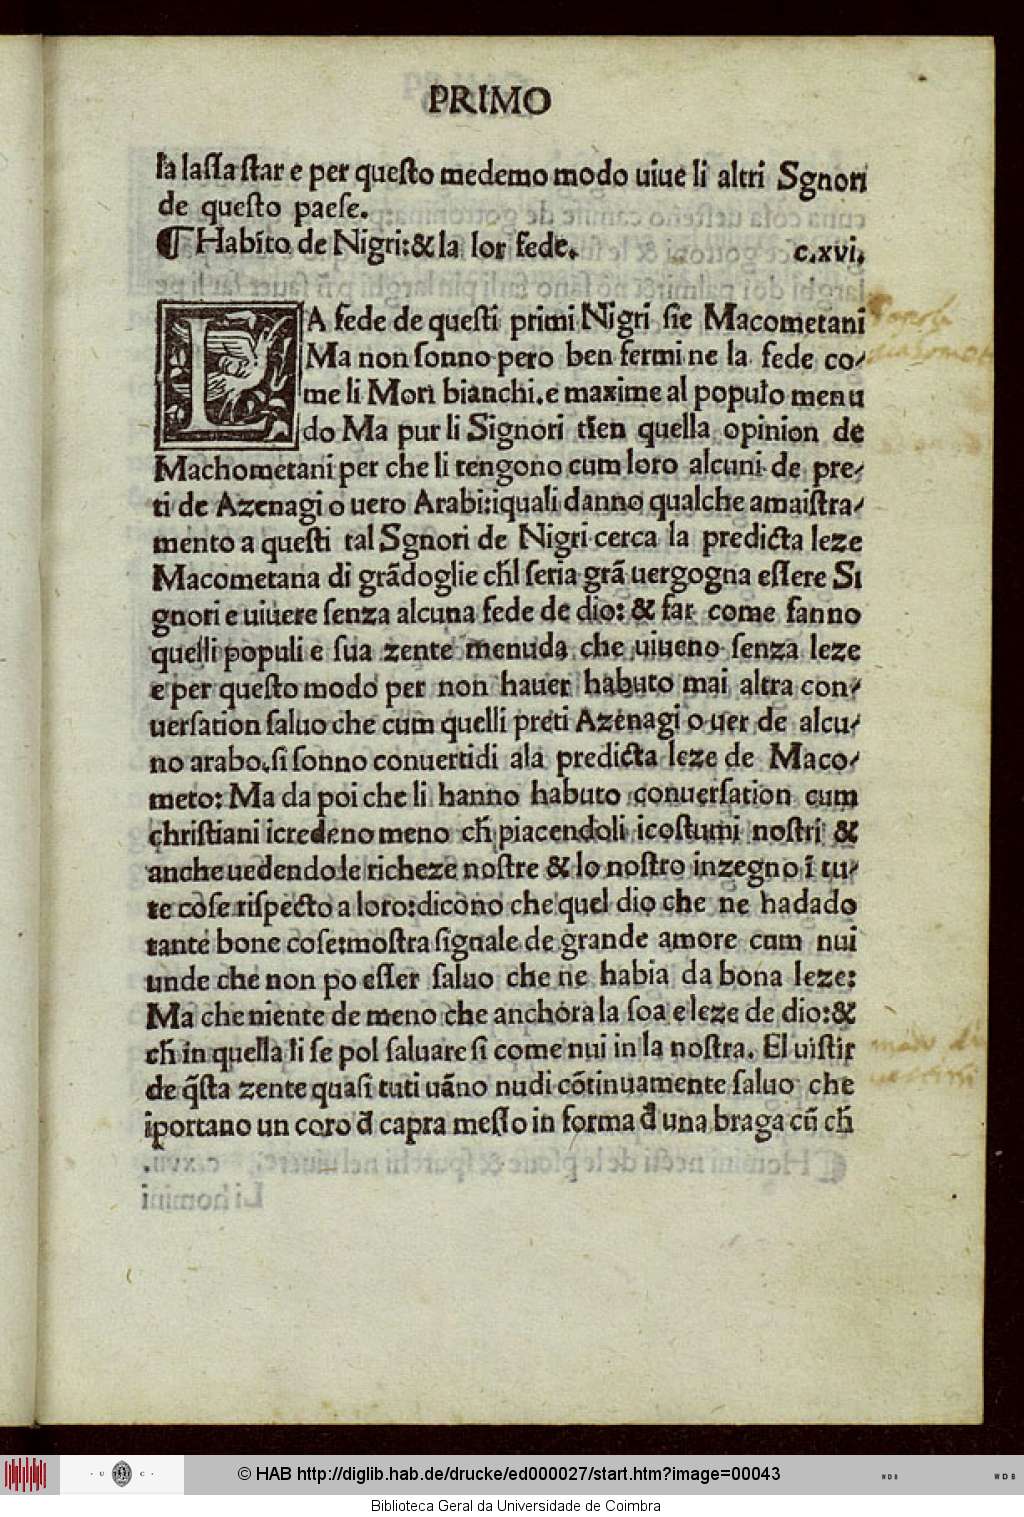 PRIMO
la laſſa ſtar e per queſto medemo modo uiue li altri Sgnori
de queſto paeſe.
¶ Habito de Nigri:& la lor fede. c.xvi.
LA fede de queſti primi Nigri ſie Macometani
Ma non ſonno pero ben fermi ne la fede co/
me li Mori bianchi.e maxime al populo menu
do Ma pur li Signori tien quella opinion de
Machometani per che li tengono cum loro alcuni de pre/
ti de Azenagi o uero Arabi:iquali danno qualche amaiſtra/
mento a queſti tal Sgnori de Nigri cerca la predicta leze
Macometana di grādoglie ch̄l ſeria grā uergogna eſſere Si
gnori e uiuere ſenza alcuna fede de dio: & far come fanno
quelli populi e ſua zente menuda che uiueno ſenza leze
e per queſto modo per non hauer habuto mai altra con/
uerſation ſaluo che cum quelli preti Azenagi o uer de alcu/
no arabo.ſi ſonno conuertidi ala predicta leze de Maco/
meto: Ma da poi che li hanno habuto conuerſation cum
chriſtiani icredeno meno ch̄ piacendoli icoſtumi noſtri &
anche uedendo le richeze noſtre & lo noſtro inzegno ī tu/
te coſe riſpecto a loro:dicono che quel dio che ne ha dado
tante bone coſe:moſtra ſignale de grande amore cum nui
unde che non po eſſer ſaluo che ne habia da bona leze:
Ma che niente de meno che anchora la ſoa e leze de dio:&
ch̄ in quella li ſe pol ſaluare ſi come nui in la noſtra. El uiſtir
de q̄ſta zente quaſi tuti uāno nudi cōtinuamente ſaluo che
iportano un coro đ capra meſſo in forma đ una braga cū ch̄
© HAB http://diglib.hab.de/drucke/ed000027/start.htm?image=00043
U C
WDB
WDB
Biblioteca Geral da Universidade de Coimbra